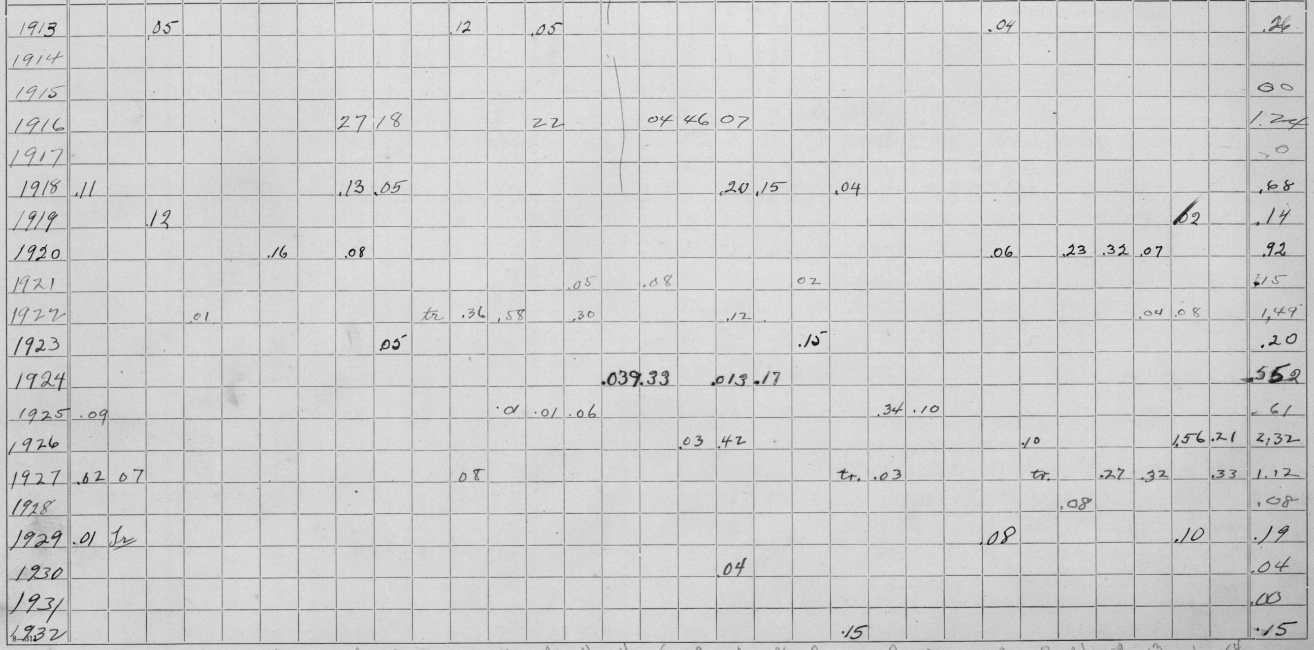 1913 .05 .12 .05 .04 .26
1914
1915 00
1916 27 18 22 04 46 07 1.24
1917 .0
1918 .11 .13 .05 .20 .15 .04 .68
1919 .12 .02 .14
1920 .16 .08 .06 .23 .32 .07 .92
1921 .05 .08 02 .15
1922 .01 tr .36 .58 .30 .12 .04 .08 1.49
1923 .05 .15 .20
1924 .039 .33 .013 .17 .552
1925 .09 .01 .01 .06 .34 .10 .61
1926 .03 .42 .10 1.56 .21 2.32
1927 .02 07 08 tr. .03 tr. .27 .32 .33 1.12
1928 .08 .08
1929 .01 Tr .08 .10 .19
1930 .04 .04
1931 .00
1932 .15 .15